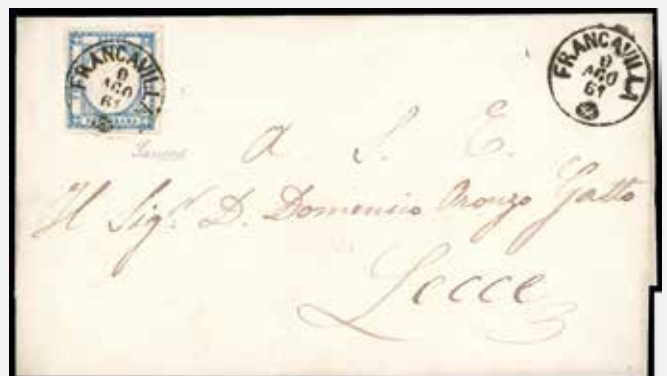 FRANCAVILLA
9
AGO
61
FRANCAVILLA
9
AGO
61
A S. E.
Il Sigr. D. Domenico Oronzo Gatto
Lecce